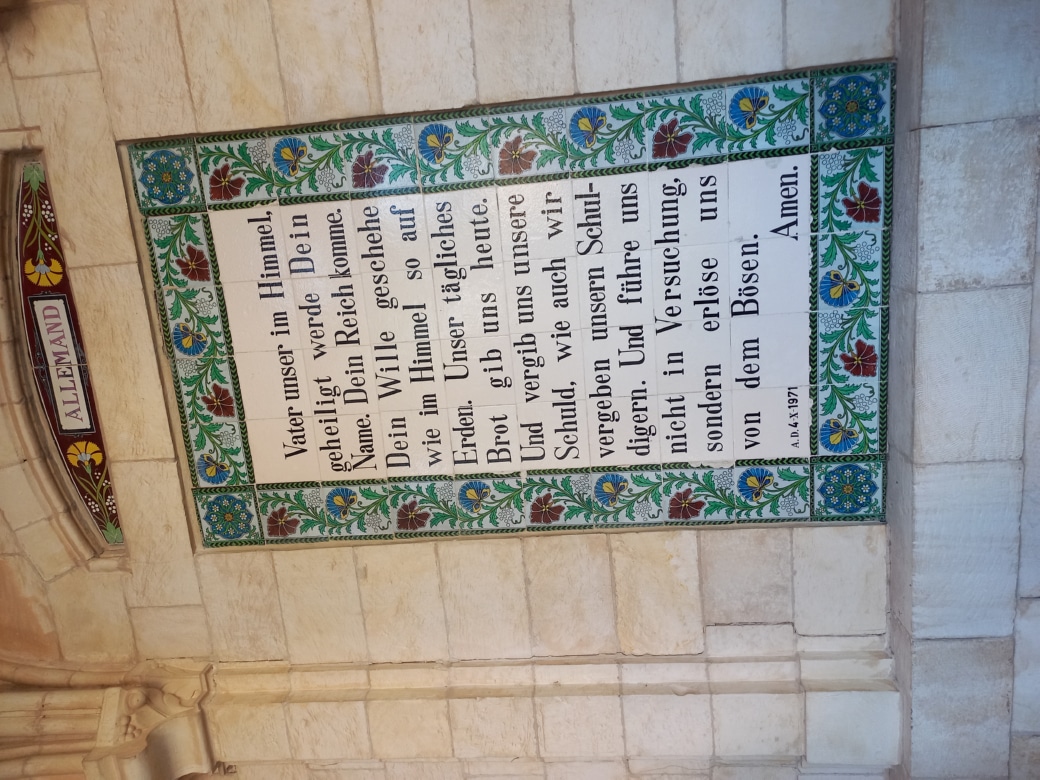 ALLEMAND
Vater unser im Himmel,
geheiligt werde Dein
Name. Dein Reich komme.
Dein Wille geschehe
wie im Himmel so auf
Erden. Unser tägliches
Brot gib uns heute.
Und vergib uns unsere
Schuld, wie auch wir
vergeben unsern Schul-
digern. Und führe uns
nicht in Versuchung,
sondern erlöse uns
von dem Bösen.
Amen.
A.D.4-X-1971